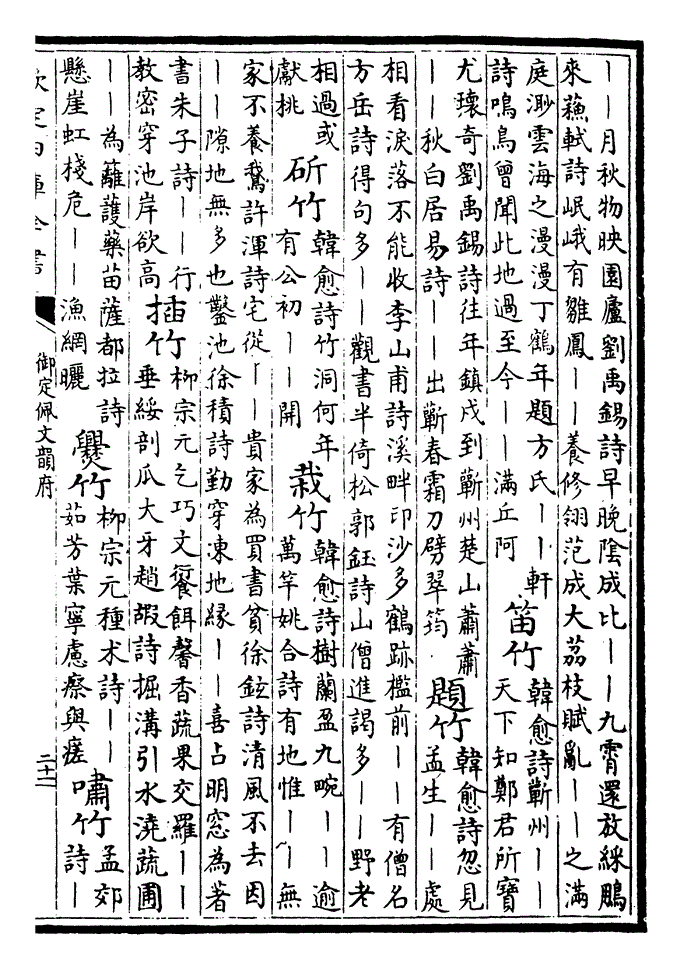 丨丨月秋物映園廬劉禹錫詩早晚陰成比丨丨九霄還放綵鵬
來蘇軾詩岷峨有雛鳳丨丨養修翎范成大荔枝賦亂丨丨之滿
庭渺雲海之漫漫丁鶴年題方氏丨丨軒
詩鳴鳥曾聞此地過至今丨丨滿丘阿
笛竹
韓愈詩蘄州丨丨
天下知鄭君所寶
尤瓌奇劉禹錫詩往年鎮戍到蘄州楚山蕭蕭
丨丨秋白居易詩丨丨出蘄春霜刀劈翠筠
題竹
韓愈詩忽見
孟生丨丨處
相看淚落不能收李山甫詩溪畔印沙多鶴跡檻前丨丨有僧名
方岳詩得句多丨丨觀書半倚松郭鈺詩山僧進謁多丨丨野老
相過或
獻桃
斫竹
韓愈詩竹洞何年
有公初丨丨開
栽竹
韓愈詩樹蘭盈九畹丨丨逾
萬竿姚合詩有地惟丨丨無
家不養鵞許渾詩宅從丨丨貴家為買書貧徐鉉詩清風不去因
丨丨隙地無多也鑿池徐積詩勤穿凍地緣丨丨喜占明窓為著
書朱子詩丨丨行
教密穿池岸欲高
插竹
柳宗元乞巧文餈餌馨香蔬果交羅丨丨
垂綏剖瓜犬牙趙嘏詩掘溝引水澆蔬圃
丨丨為籬護藥苗薩都拉詩
懸崖虹棧危丨丨漁網曬
爨竹
柳宗元種朮詩丨丨
茹芳葉寧慮瘵與瘥
嘯竹
孟郊
詩丨
欽定四庫全書
御定佩文韻府
二十二